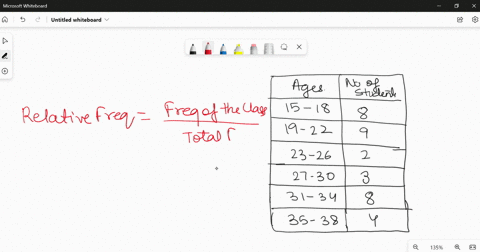 Microsoft Whiteboard
Untitled whiteboard
Relative Freq = Freq of the Class
Total
Ages No of Student
15-18 8
19-22 9
23-26 2
27-30 3
31-34 8
35-38 4
135%